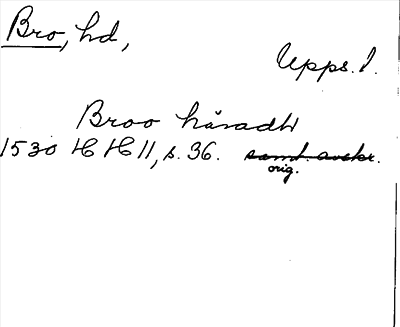 Bro, hd,
Upps. l.
Broo håradh
1530 HH 11, s. 36. samt. avskr.
orig.